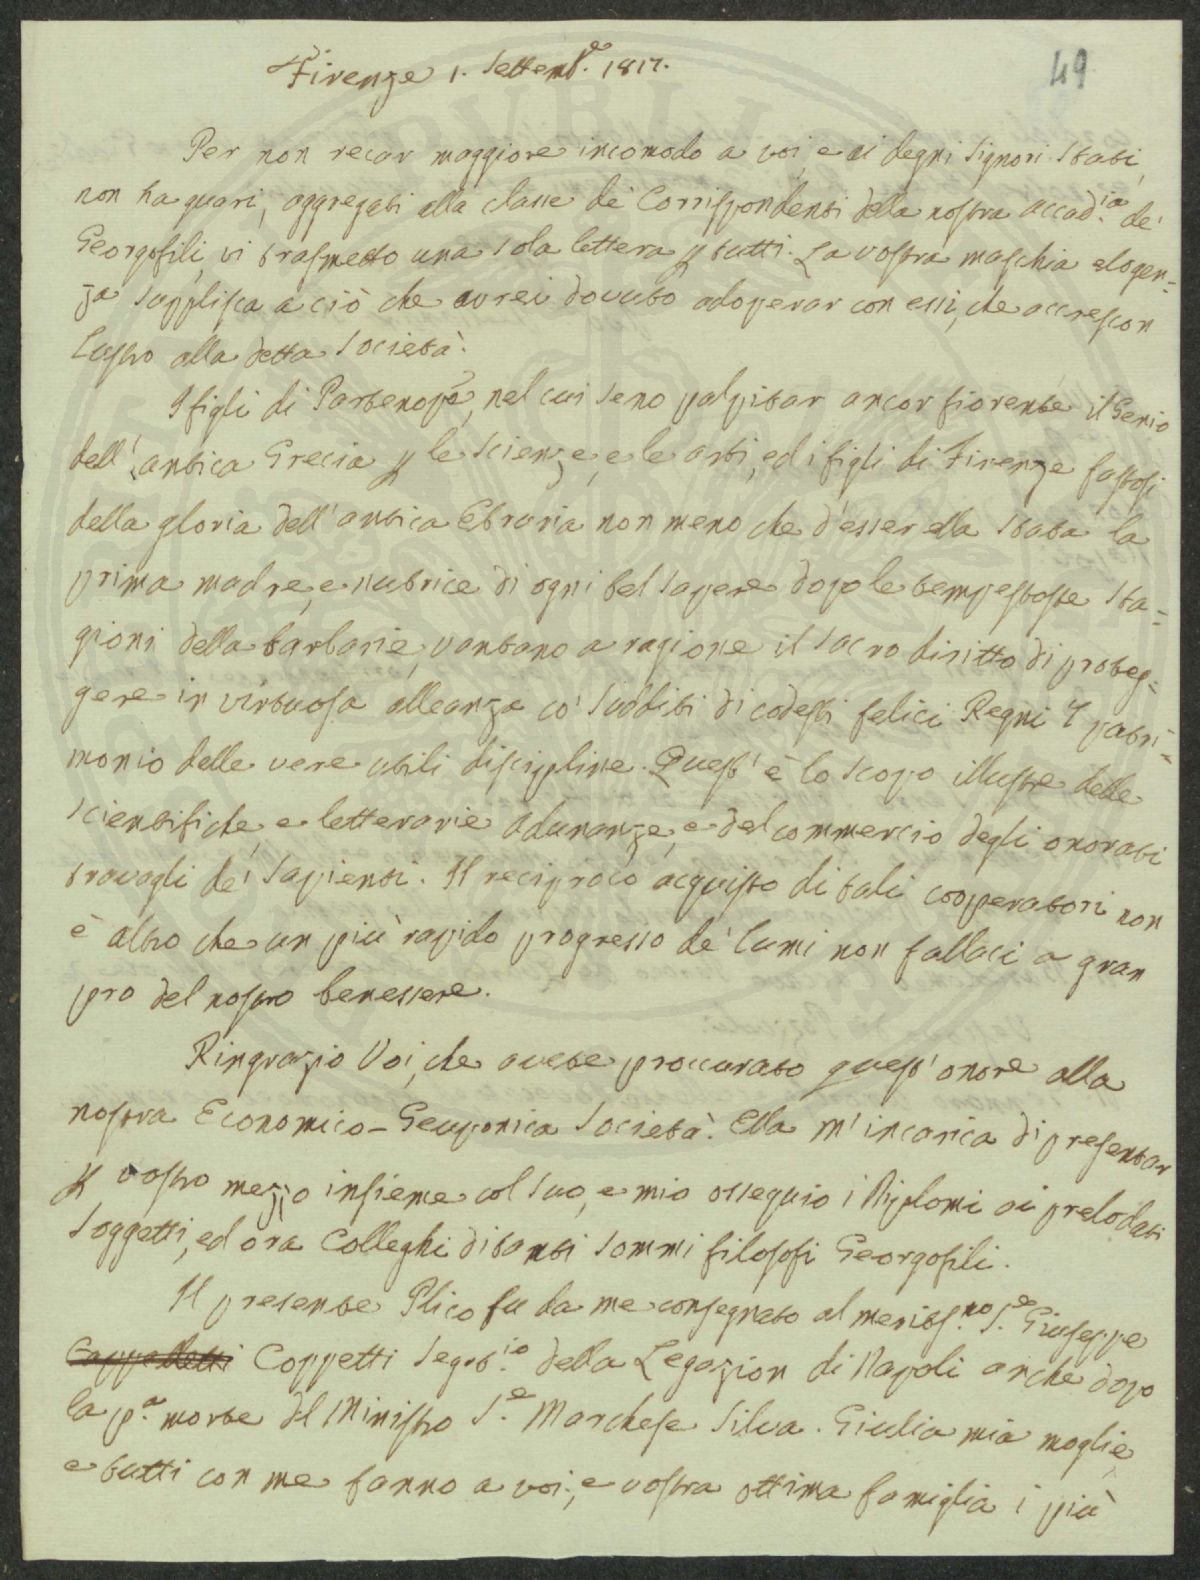 49
Firenze 1. Settemb.e 1817.
Per non recar maggiore incomodo a voi, e ai degni Signori stati,
non ha guari, aggregati alla classe de' Corrispondenti della nostra Accad.ia de'
Georgofili, vi trasmetto una sola lettera p tutti. La vostra maschia eloquen=
za supplisca a ciò che avrei dovuto adoperar con essi, che accrescon
lustro alla detta Società.
I figli di Partenope, nel cui seno palpitar ancor fiorente il Genio
dell'antica Grecia p le scienze, e le arti, ed i figli di Firenze fastosi
della gloria dell'antica Etruria non meno che d'esser ella stata la
prima madre, e nutrice di ogni bel sapere dopo le tempestose sta=
gioni della barbarie, vantano a ragione il sacro diritto di proteg=
gere in virtuosa alleanza co' sudditi di codesti felici Regni il patri=
monio delle vere utili discipline. Quest'è lo scopo illustre delle
scientifiche, e letterarie adunanze, e del commercio degli onorati
travagli de' sapienti. Il reciproco acquisto di tali cooperatori non
è altro che un più rapido progresso de' lumi non fallaci a gran
pro del nostro benessere.
Ringrazio Voi, che avete proccurato quest'onore alla
nostra Economico-Geuponica Società. Ella m'incarica di presentar
p vostro mezzo insieme col suo, e mio ossequio i Diplomi ai prelodati
Soggetti, ed ora Colleghi di tanti sommi filosofi Georgofili.
Il presente Plico fu da me consegnato al meritis.mo S.e Giuseppe
Cappelletti Coppetti Segret.io della Legazion di Napoli anche dopo
la p.a morte del Ministro S.e Marchese Silva. Giulia mia moglie,
e tutti con me fanno a voi, e vostra ottima famiglia i più